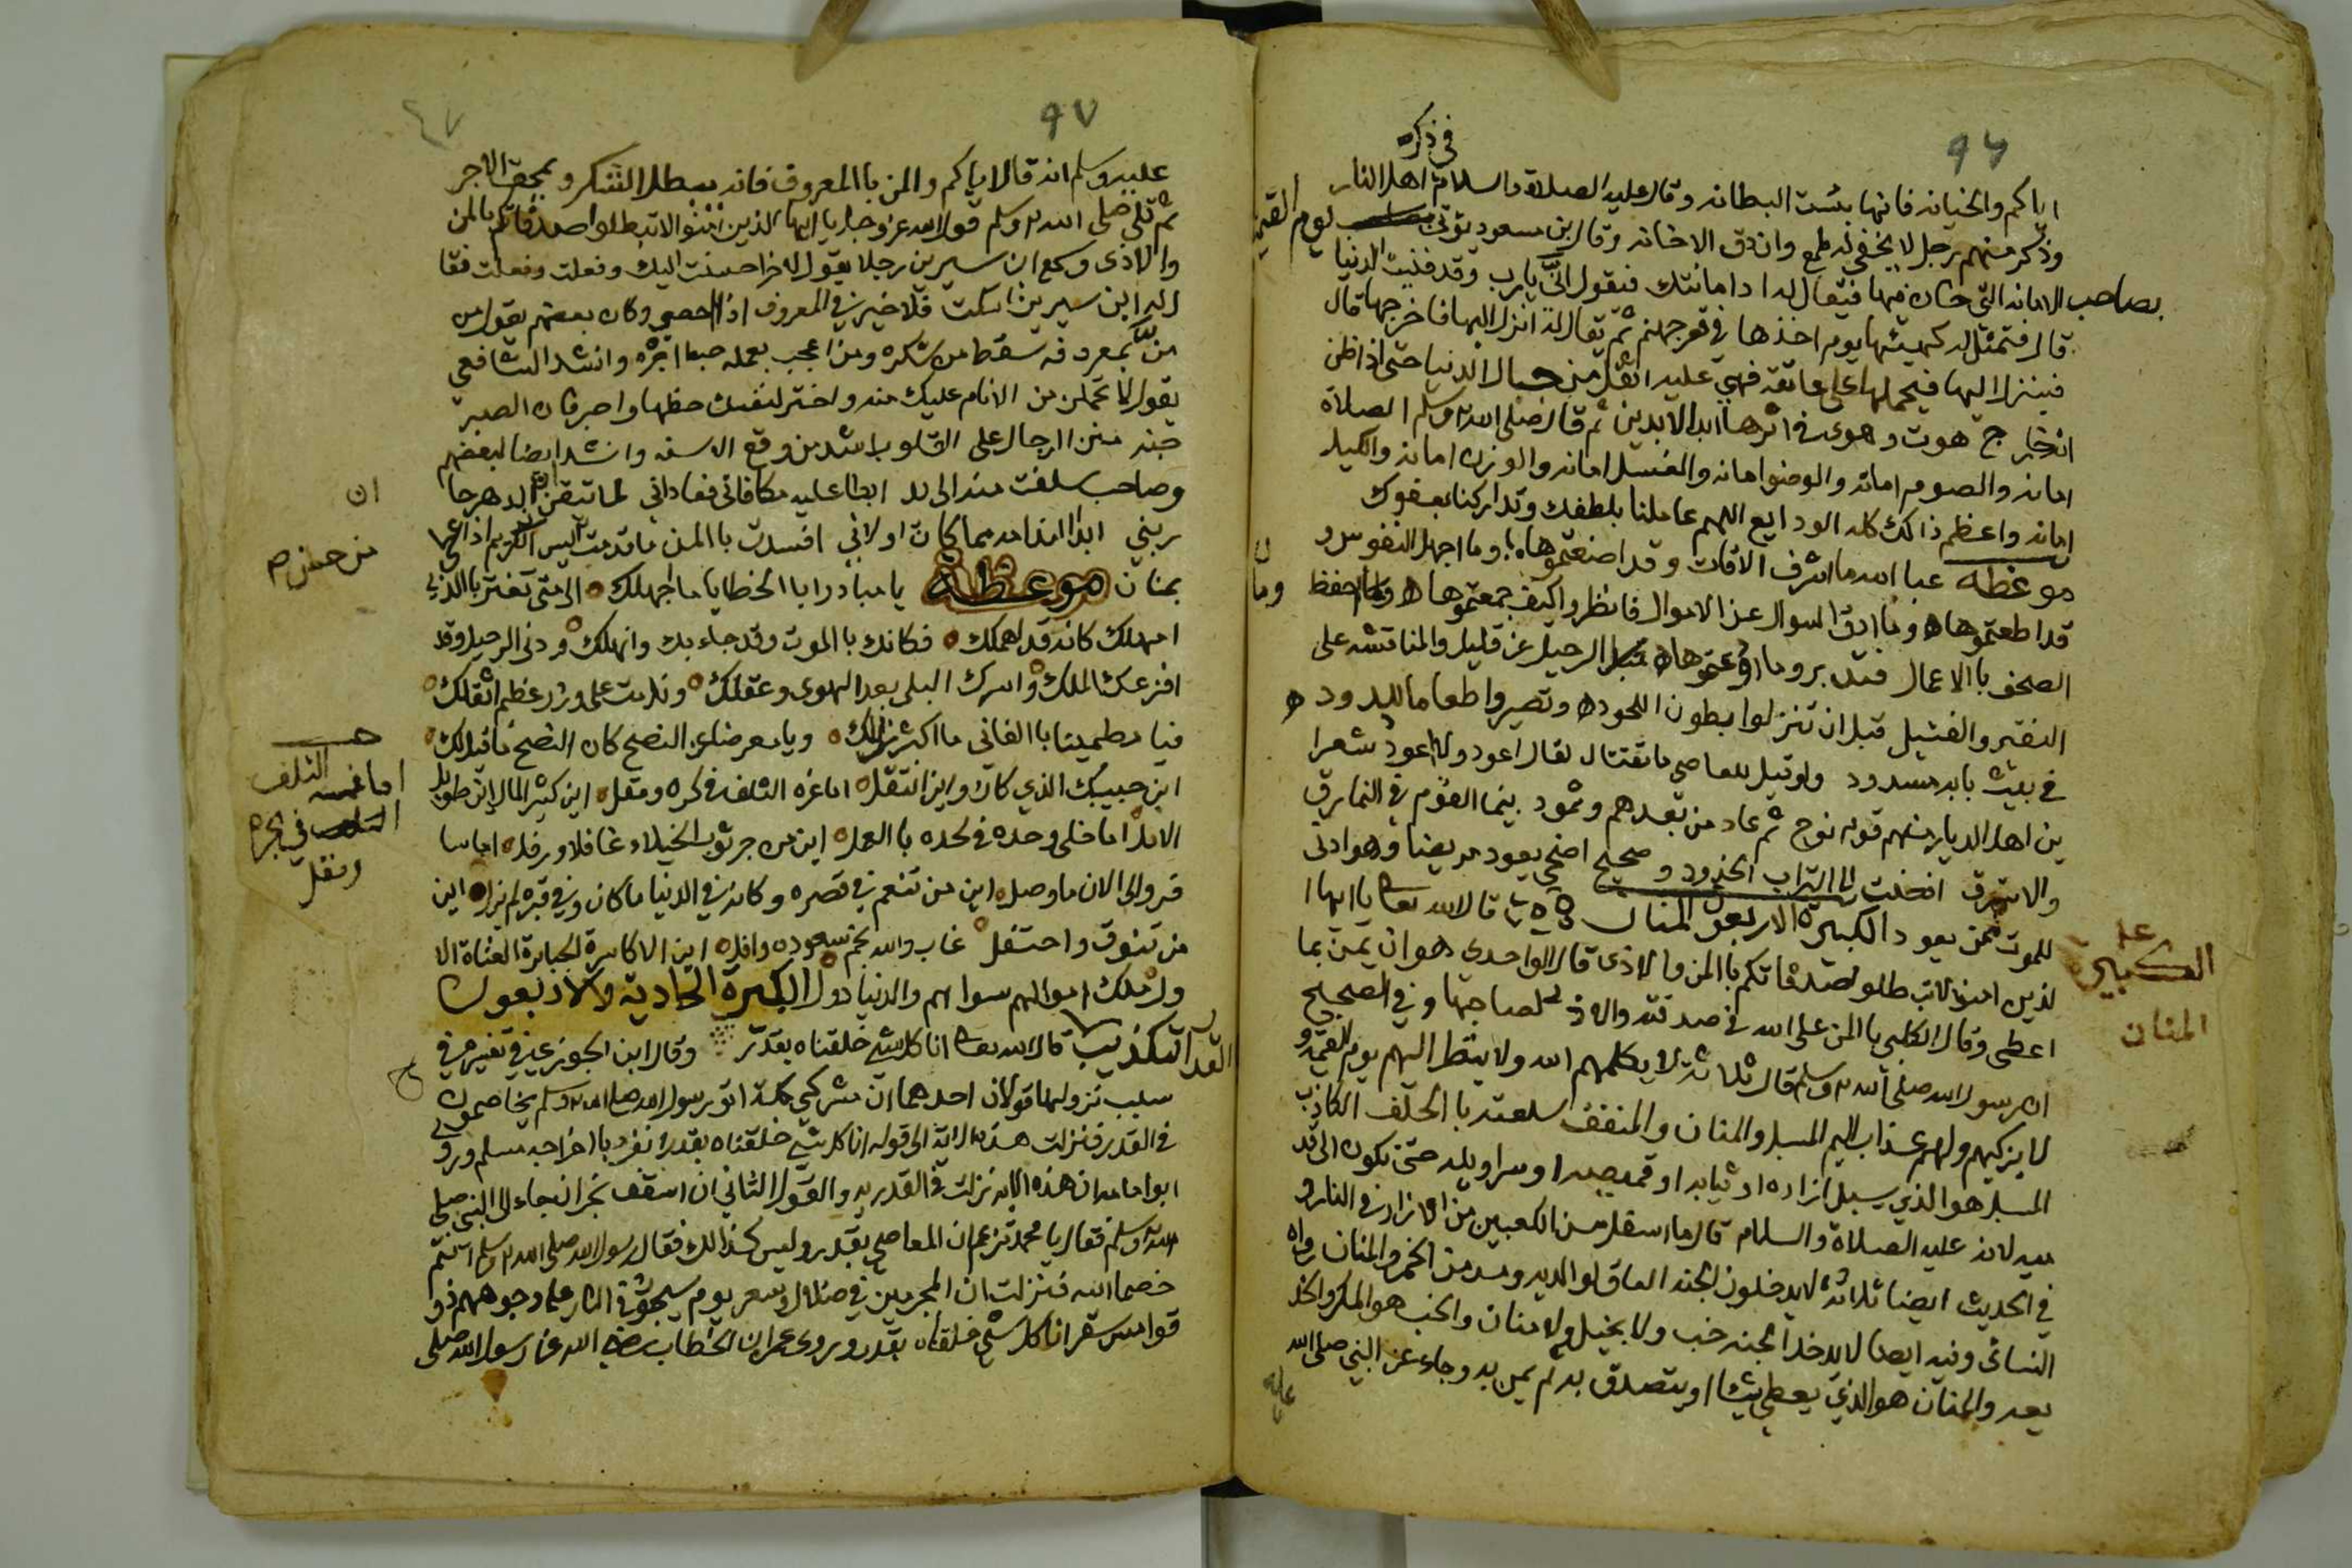 ٩٦
في ذكره
اياكم والخيانه فانها بئست البطانه وقال عليه الصلاة والسلام اهل النار
وذكر منهم رجل لا يخفي له طمع وان دق الا خانه وقال بن مسعود يؤتى يوم القيمة
بصاحب الامانه التي خان فيها فيقال له ادا امانتك فيقول انّي يارب وقد فنيت الدنيا
قال فتمثل له كهيئتها يوم اخذها في قعر جهنم ثمّ يقال لهُ انزل اليها فاخرجها قال
فينزل اليها فيحملها على عاتقه فهي عليه اثقل من جبال الدنيا حتى اذا ظن
انه خارج هوت وهوى في اثرها ابد الابدين ثم قال صلى الله وسلم الصلاة
امانه والصوم امانه والوضوا امانه والغسل امانه والوزن امانه والكيل
امانه واعظم ذالك كله الودايع اللهم عاملنا بلطفك وتداركنا بعفوك
موعظه عبا الله ما اشرف الاوقات وقد اضعتموها وما اجهل النفوس و
قد اطعتموها وما ادق السوال عن الاموال فانظروا كيف جمعتموها وما احفظ
الصحف بالاعمال فتدبروا ما اودعتموها قبل الرحيل عن قليل والمناقشه على
النقير والفتيل قبل ان تنزلوا بطون اللحود وتصيروا طعاما للدود
في بيت بابه مسدود ولو قيل للعاصي ما تختار لقال اعود ولا اعود شعرا
ين اهل الديار منهم قوم نوح ثم عاد من بعدهم وثمود بينما القوم في النمارق
والاستبرق افضت الى التراب الخدود وصحيح اضحى يعود مريضا وهو ادنى
للموت ممن يعود الكبيرة الاربعون المنان قال الله تعا يا ايها ا
لذين امنوا لا تبطلوا صدقاتكم باالمن والاذى قال الواحدي هو ان يمن بما
اعطى وقال الكلبي باالمن على الله في صدقته والاذى لصاحبها وفي الصحيح
ان رسول الله صلى الله وسلم قال ثلاثه لا يكلمهم الله ولا ينظر اليهم يوم القيمة و
لا يزكيهم ولهم عذاب اليم المسبل والمنان والمنفق سلعته باالحلف الكاذب
المسبل هو الذي يسبل ازاره او ثيابه او قميصه او سراويله حتى تكون الى قد
ميه لانه عليه الصلاة والسلام قال ما اسفل من الكعبين من الازار في النار و
في الحديث ايضا ثلاثه لا يدخلون الجنه العاق لوالديه ومدمن الخمر والمنان رواه
النسائى وفيه ايضا لا يدخل الجنه خب ولا بخيل ولا منان والخب هو المكر والخد
يعه والمنان هو الذي يعطي شيئا او يتصدق به ثم يمن به وجاء عن النبي صلى الله
عليه
الكبيرة
المنان
٩٧
عليه وسلم انه قال اياكم والمن باالمعروف فانه يبطل الشكر ويمحق الاجر
ثم تلى صلى الله وسلم قول الله عز وجل يا ايها الذين امنوا لا تبطلوا صدقاتكم بالمن
والاذى وسمع ابن سيرين رجلا يقول لاخر احسنت اليك وفعلت وفعلت فقا
ل له ابن سيرين اسكت فلا خير في المعروف اذا احصي وكان بعضهم يقول من
منّ بمعروفه سقط من شكره ومن اعجب بعمله حبط اجره وانشد الشافعي
يقول لا تحملن من الانام عليك منه واختر لنفسك حظها واصبر فان الصبر
جنه منن الرجال على القلوب اشد من وقع الاسنه وانشد ايضا لبعضهم
وصاحب سلفت منه الى يد ابطا عليه مكافاتي فعاداني لما تيقن ان الدهر حا
ربني ابدا الندامه مما كان اولاني افسدت باالمن ما قدمت ليس الكريم اذا اعطى
بمنان موعظة يا مبادرا باالخطايا ما اجهلك الى متى تغتر بالذي
امهلك كانه قد اهملك فكانك باالموت وقد جاء بك وانهلك ودنى الرحيل وقد
افزعك الملك واسرك البلى بعد الهوى وعقلك وندمت على وزر عظيم اثقلك
فيا مطمينا باالفاني ما اكثر زللك ويا معرضا عن النصح كان النصح ما قيل لك
اين حبيبك الذي كان واين انتقل اما غره التلف في كره ومقل اين كثير المال اين طويل
الامل اما خلى وحده في لحده باالعمل اين من جر ثوب الخيلاء غافلا ورفل اما سا
فر والى الان ما وصل اين من تنعم في قصره وكانه في الدنيا ما كان وفي قبره لم يزل اين
من تفوق واحتفل غاب والله نجم سعوده وافل اين الاكاسرة الجبابرة العتاة الا
ول ملك اموالهم سواهم والدنيا دول الكبيرة الحادية والاربعون
التكذيب القدر قال الله تعا انا كل شيء خلقناه بقدر وقال ابن الجوزي في تفسيره في
سبب نزولها قولان احدهما ان مشركي مكة اتو رسول الله صلى الله وسلم يخاصمون
في القدر فنزلت هذه الايه الى قوله انا كل شيء خلقناه بقدر انفرد باخراجه مسلم وروى
ابوا مامه ان هذه الايه نزلت في القدريه والقول الثاني ان اسقف نجران جاء الى النبي صلى
الله وسلم فقال يا محمد تزعم ان المعاصي بقدر وليس كذالك فقال رسول الله صلى الله وسلم انتم
خصما الله فنزلت ان المجرمين في ضلال وسعر يوم يسحبون في النار على وجوههم ذو
قوا مس سقر انا كل شيء خلقناه بقدر وروى عمر ابن الخطاب رضي الله عن رسول الله صلى
ان
اما غره التلف
في كره
ومقل